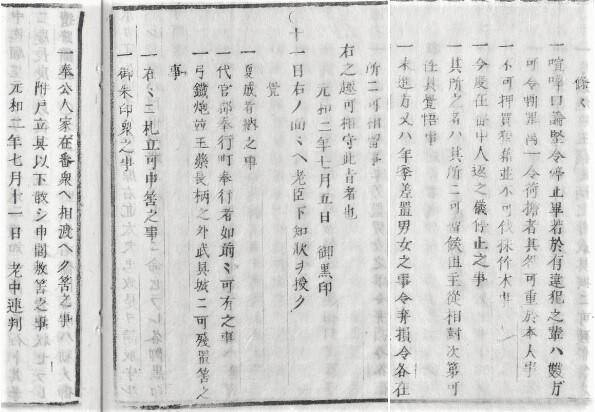 條々
一喧嘩口論堅令停止畢若於有違犯之輩ハ雙方
可令誅罰萬一令荷擔者其咎可重於本人事
一不可押買狼藉並不可伐採竹木事
一今度在府中人返之儀停止之事
一其所之者ハ其所ニ可留候但主從相對次第可
任其覚悟事
一未進方又ハ年季差置男女之事令弃損令各在
所ニ可相留事
右之趣可相守此旨者也
元和二年七月五日 御黒印
十一日右ノ面々ヘ老臣下知狀ヲ授ク
覺
一夏成者納之事
一代官郡奉行町奉行者如前々可有之事
一弓鐵炮並玉藥長柄之外武具城ニ可残置筈之
事
一在々ニ札立可申筈之事
一御朱印衆之事
一奉公人家在番衆ヘ相渡ヘク筈之事
附戸立具以下敢シ申間敷筈之事
元和二年七月十一日 老中連判